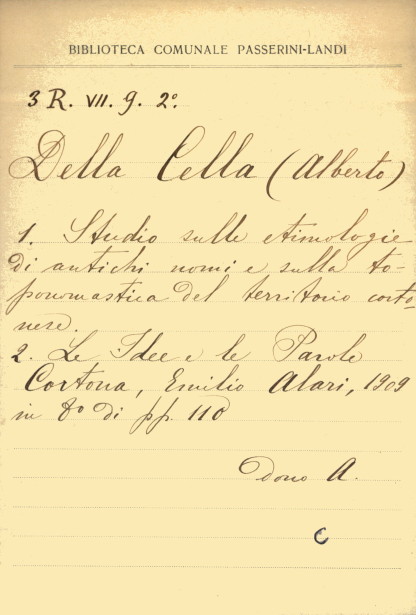 BIBLIOTECA COMUNALE PASSERINI-LANDI
3 R. VII. 9. 2º.
Della Cella (Alberto)
1. Studio sulle etimologie
di antichi nomi e sulla to-
ponomastica del territorio corto-
nese.
2. Le Idee e le Parole
Cortona, Emilio Alari, 1909
in 8º di pp. 110
Dono A.
C